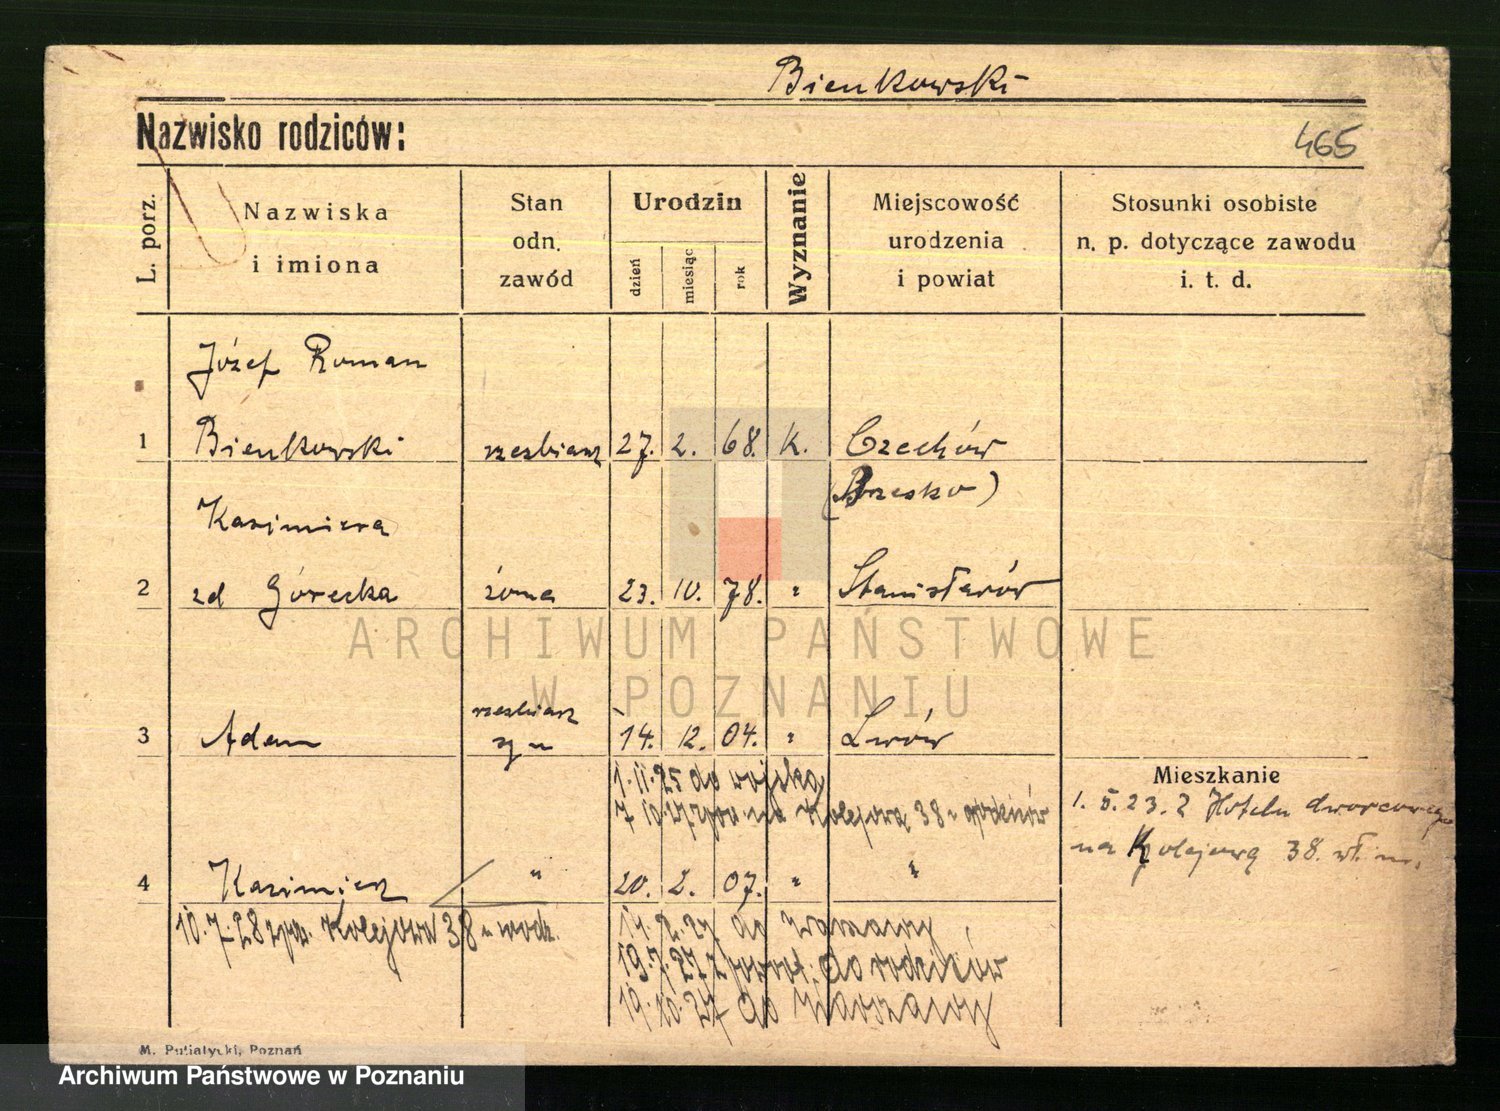 Bienkowski
Nazwisko rodziców:
465
L. porz.
Nazwiska
i imiona
Stan
odn.
zawód
Urodzin
dzień
miesiąc
rok
Wyznanie
Miejscowość
urodzenia
i powiat
Stosunki osobiste
n. p. dotyczące zawodu
i. t. d.
Józef Roman
1 Bienkowski rzezbiarz 27. 2. 68. K. Czechów
(Brzesko)
Kazimiera
2 zd Górecka żona 23. 10. 78. " Stanisławów
rzezbiarz
3 Adam syn 14. 12. 04. " Lwów
1.11.25 do wojska
7 10.27 na Kolejową 38 u rodziców
Mieszkanie
1. 5. 23. z Hotelu dworcowego
na Kolejową 38. wł. m.
4 Kazimierz " 20. 2. 07. " "
10.7.28 Kolejowa 38 u rodz.
do Warszawy
19.7.27 z powrot. do rodziców
19.10.27 do Warszawy
M. Putiatycki, Poznań
ARCHIWUM PAŃSTWOWE
W POZNANIU
Archiwum Państwowe w Poznaniu